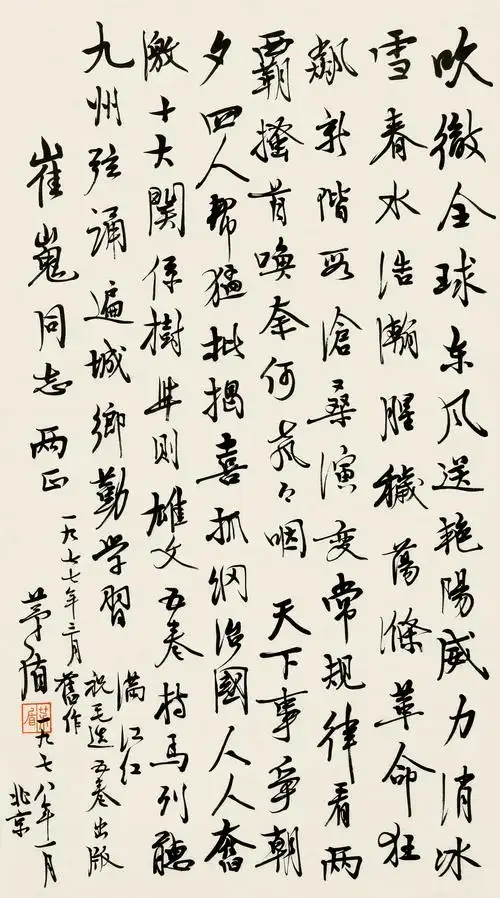 吹徹全球东风送艳陽威力消冰
雪春水浩瀚腥穢蕩滌革命狂
飙新階段滄桑演变常规律看两
霸搔首唤奈何咽天下事争朝
夕四人帮猛批揭喜抓纲治國人人奮
激十大関係樹準则雄文五卷持马列聽
九州弦诵遍城鄉勤学習
满江红
祝毛选五卷出版
一九七七年三月舊作
崔嵬同志两正
茅盾
一九七八年一月
北京